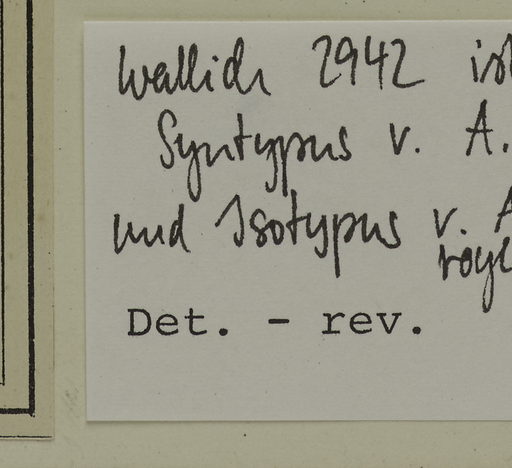 Wallich 2942 ist
Syntypus v. A.
und Isotypus v. A
royl
Det. - rev.